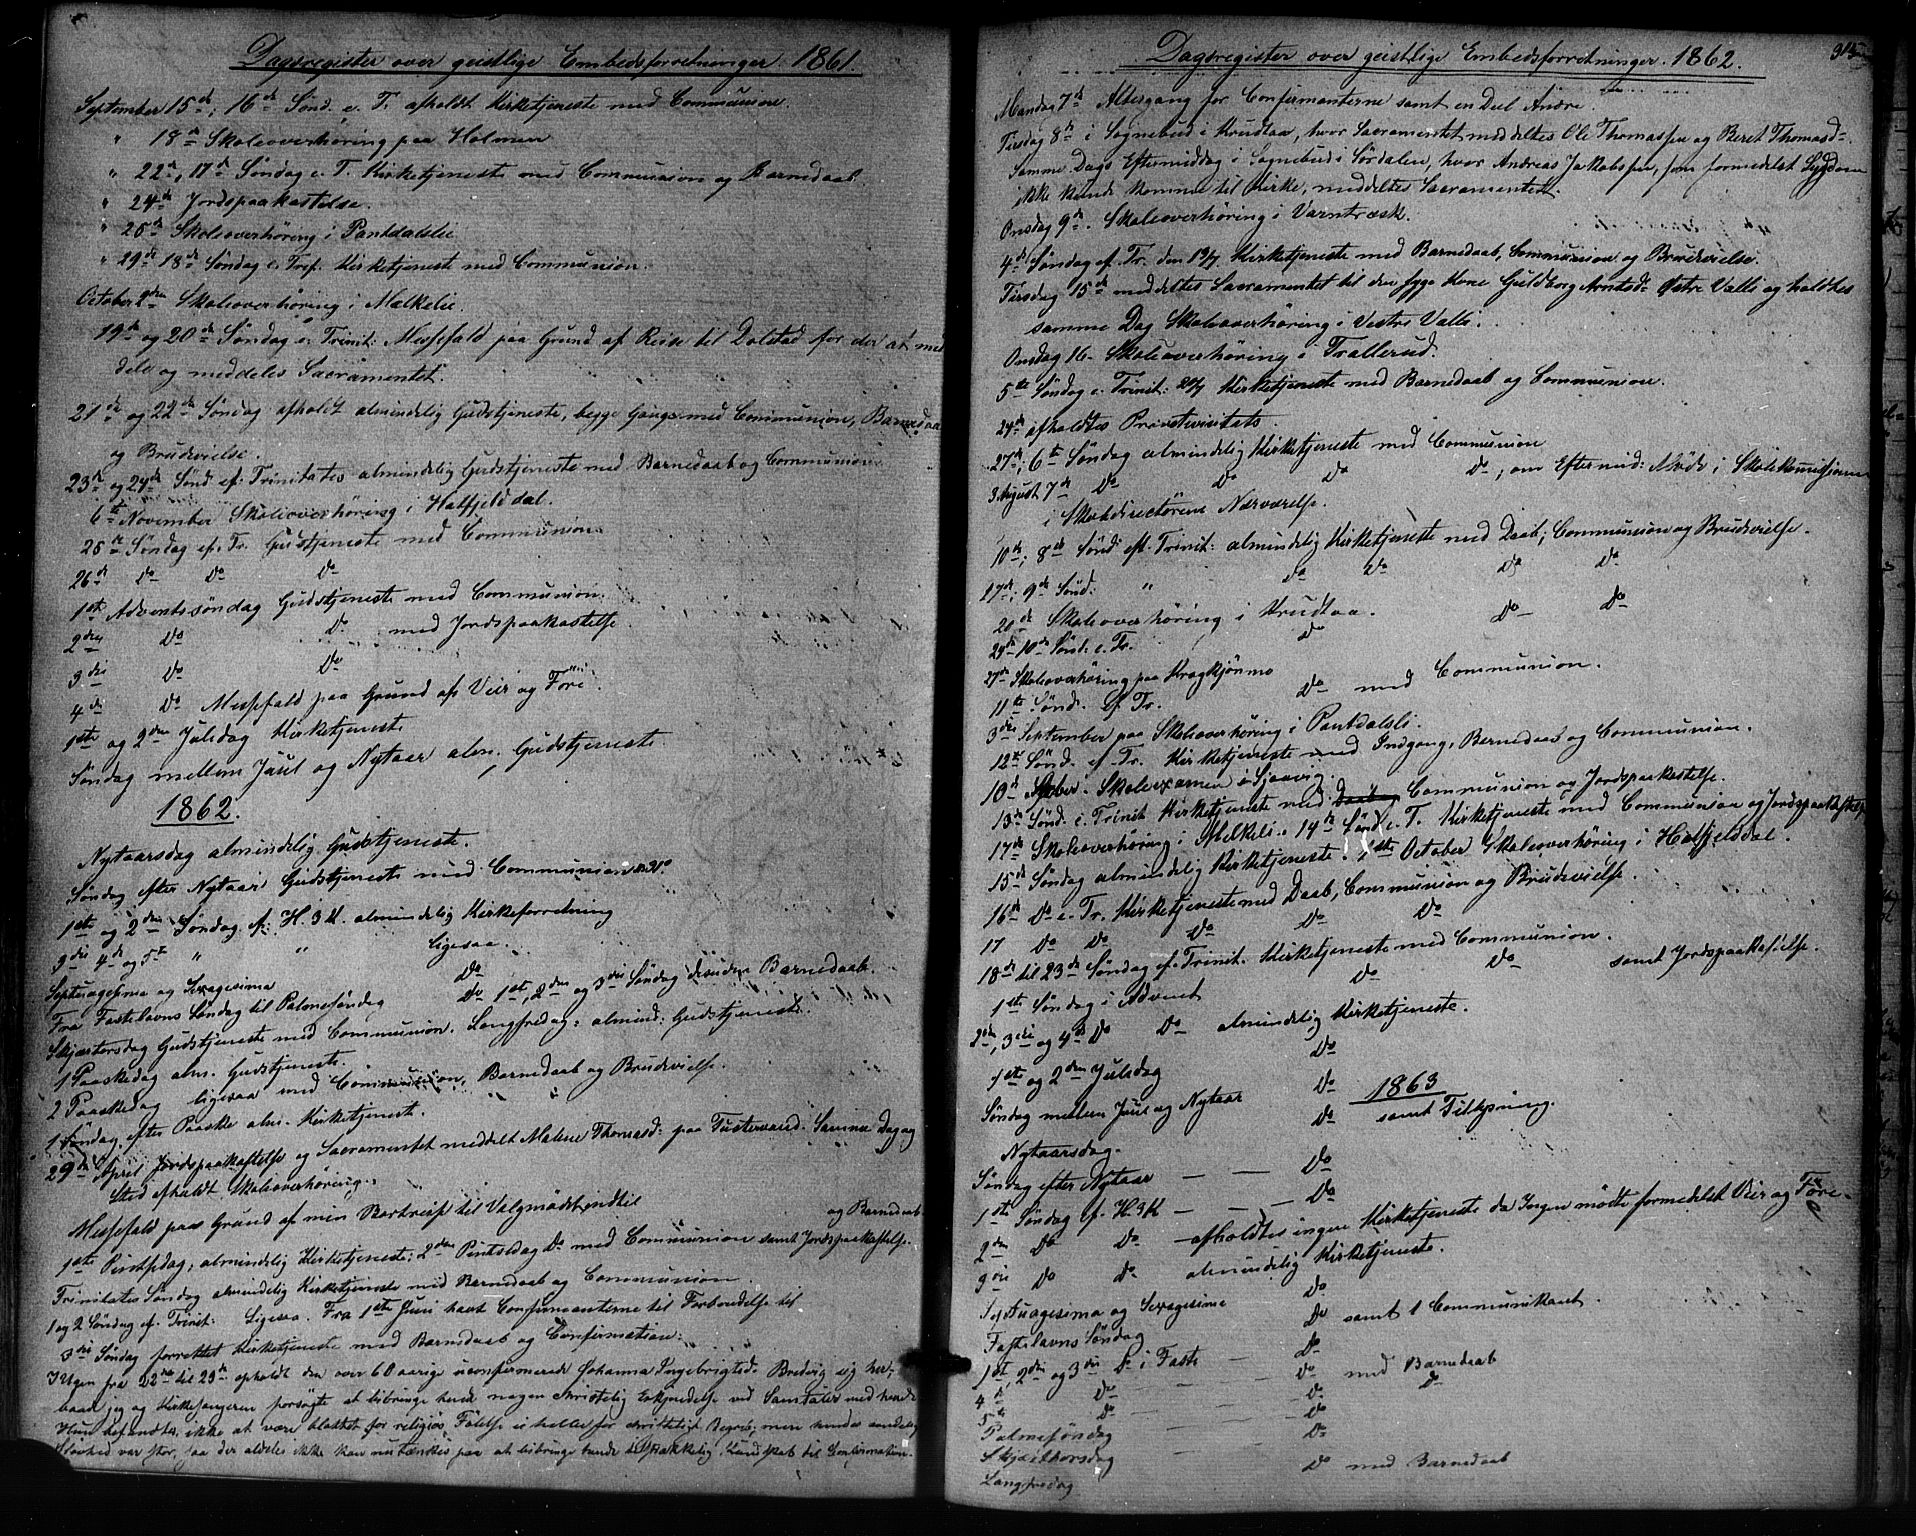 Dagsregister over geistlige Embedsforretninger 1861.
September 15de, 16de Sønd. e. T. afholdt Kirketjeneste med Communion.
" 18de Skoleoverhøring paa Holmen
" 22de, 17de Søndag e. T. Kirketjeneste med Communion og Barnedaab.
" 24de Jordspaakastelse.
" 25de Skoleoverhøring i Pantdalslie
" 29de 18de Søndag e. Tref. Kirketjeneste med Communion.
October 2den Skoleoverhøring i Mælkelie.
19de og 20de Søndag e. Trinit: Messefald paa Grund af Reise til Dolstad for der at med
dele og meddeles Sacramentet.
21de og 22de Søndag afholdt almindelig Gudstjeneste, begge Gange med Communion, Barnedaab
og Brudevielse.
23de og 24de Sønd. ef. Trinitatis almindelig Gudstjeneste med Barnedaab og Communion
6te November Skoleoverhøring i Hatfjelddal.
25de Søndag ef. Tr. Gudstjeneste med Communion
26de Do Do Do
1ste Adventssøndag Gudstjeneste med Communion.
2den Do Do med Jordspaakastelse
3die Do Do
4de Do Messefald paa Grund af Veir og Føre.
1ste og 2den Juledag Kirketjeneste
Søndag mellem Juul og Nytaar alm. Gudstjeneste.
1862.
Nytaarsdag almindelig Gudstjeneste.
Søndag efter Nytaar Gudstjeneste med Communion
1ste og 2den Søndag ef: H. 3 K. almindelig Kirkeforretning
3die 4de og 5te " " ligesaa.
Septuagesima og Sexagesima Do
Fra Fastelavns Søndag til Palmesøndag Do 1ste, 2den og 3die Søndag desuden Barnedaab.
Skjærtorsdag Gudstjeneste med Communion. Langfredag: almind: Gudstjeneste.
1 Paaskedag alm. Gudstjeneste.
2 Paaskedag ligesaa med Communion, Barnedaab og Brudevielse.
1 Søndag efter Paaske alm. Kirketjeneste.
29de April Jordspaakastelse og Sacramentet meddelt Malene Thomasd: paa Tustervand. Samme Dag og
Sted afholdt Skoleoverhøring.
Messefald paa Grund af min Bortreise til Valgmødet
og Barnedaab
1ste Pintsedag, almindelig Kirketjeneste; 2den Pintsedag Do med Communion samt Jordspaakastelse.
Trinitatis Søndag almindelig Kirketjeneste med Barnedaab og Communion
1 og 2 Søndag ef. Trinit: Ligesaa. Fra 1ste Juni havt Confirmanterne til Forberedelse til
3die Søndag forrettet Kirketjeneste med Barnedaab og Confirmation.
I Ugen fra 22de til 29de opholdt den over 60 aarige uconfirmerede Johanna Ingebrigtsd. Bredvig sig her,
baade jeg og Kirkesangeren forsøgte at bibringe hende nogen christelig Erkjendelse ved Samtaler med hende
Hun befandtes ikke at være blottet for religiøs Følelse ei heller for christelige Begreb; men hendes aandelig
Sløvhed var stor, saa der aldeles ikke kan nu tænkes paa at bibringe hende tilstrækkelig Kundskab til Confirmation.
Dagsregister over geistlige Embedsforretninger. 1862.
315
Mandag 7de Altergang for Confirmanterne samt en Deel Andre.
Tirsdag 8de i Sognebud i Krudtaa, hvor Sacramentet meddeltes Ole Thomassen og Beret Thomasd=
Samme Dags Eftermiddag i Sognebud i Sørdalen, hvor Andreas Jakobsen, som formedelst Sygdom
ikke kunde komme til Kirke, meddeltes Sacramentet.
Onsdag 9de. Skoleoverhøring i Varntræsk.
4de Søndag ef. Tr. den 13/7 Kirketjeneste med Barnedaab, Communion og Brudevielse.
Tirsdag 15de meddeltes Sacramentet til den syge Kone Guldborg Arntsd= Østre Valli og holdtes
samme Dag Skoleoverhøring i Vestre Valli.
Onsdag 16. Skoleoverhøring i Trallerud.
5te Søndag e. Trinit: 20/7 Kirketjeneste med Barnedaab og Communion.
24de afholdtes Provstevisitats.
27de; 6te Søndag almindelig Kirketjeneste med Communion
3 August 7de Do Do Do Do, om Eftermid: Møde i Skolekommissionen
i Skoledirectørens Nærværelse.
10de; 8de Sønd eft. Trinit: almindelig Kirketjeneste med Daab, Communion og Brudevielse.
17de; 9de Sønd. " Do Do Do Do
20de Skoleoverhøring i Krudtaa. Do Do
24de 10de Sønd. e. Tr. Do
27de Skoleoverhøring paa Kragkjønmo
11te Sønd. ef. Tr. Do med Communion.
3die September paa Skoleoverhøring i Pantdalsli.
12te Sønd. ef. Tr. Kirketjeneste med Indgang, Barnedaab og Communion.
10de Skoleexamen i Sjaavig.
13de Sønd. e. Trinit Kirketjeneste med Communion og Jordspaakastelse.
17de Skoleoverhøring i Mælkeli. 14de Sønd e. T. Kirketjeneste med Communion og Jordspaakastelse
15de Søndag almindelig Kirketjeneste. 1ste October Skoleoverhøring i Hatfjelddal.
16de Do e. Tr. Kirketjeneste med Daab, Communion og Brudevielse.
17 Do Do Do Do Do
18de til 23de Søndag ef. Trinit. Kirketjeneste med Communion.
1ste Søndag i Advent Do Do samt Jordspaakastelse.
2den, 3die og 4de Do Do almindelig Kirketjeneste.
1ste og 2den Juledag Do
Søndag mellem Juul og Nytaar Do
1863
Nytaarsdag. Do samt Tilkjsning.
Søndag efter Nytaar Do
1ste Søndag ef. H 3 K Do
2den Do Do afholdtes ingen Kirketjeneste da Ingen mødte formedelst Veir og Føre.
3die Do Do almindelig Kirketjeneste.
Septuagesima og Sexagesima Do
Fastelavns Søndag Do samt 1 Communikant.
1ste, 2den og 3die Do i Faste Do
4de Do Do med Barnedaab
5te Do Do Do
Palmesøndag Do
Skjærthorsdag Do
Langfredag Do med Barnedaab